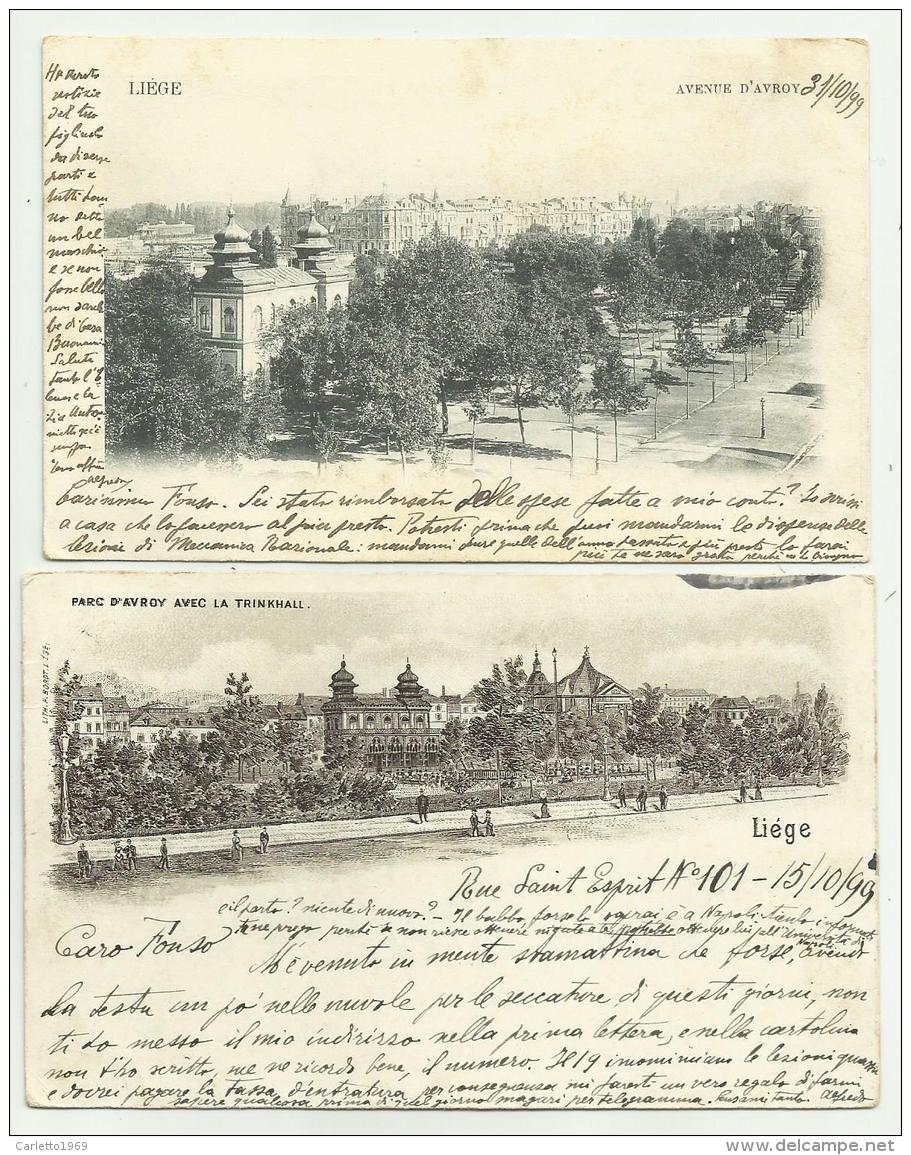 LIÉGE
AVENUE D'AVROY
31/10/99
notizie
del tuo
figliuolo
da diverse
parti e
tutti
un bel
maschio
e se non
fosse bello
non
be di Casa
Buonanni
Saluta
tanto l'E
lena e la
Zia Anto
nietta
Alfredo
Carissimo Fonso. Sei stato rimborsato delle spese fatte a mio conto? Io scrissi
a casa che lo facessero al più presto. Potresti prima che puoi mandarmi le dispense delle
lezioni di Meccanica Razionale: mandami pure quelle dell'anno passato e più presto lo farai
più te ne sarò grato perchè
PARC D'AVROY AVEC LA TRINKHALL.
LITH. F. BORDT. LIÉGE.
Liége
Rue Saint Esprit No 101 - 15/10/99
e il parto? niente di nuovo? - Il babbo forse lo saprai è a Napoli
prego perchè se non
Università di
Napoli.
Caro Fonso
M'è venuto in mente stamattina che forse, avendo
la testa un po' nelle nuvole per le seccature di questi giorni, non
ti ho messo il mio indirizzo nella prima lettera, e nella cartolina
non t'ho scritto, me ne ricordo bene, il numero. Il 19 incominciano le lezioni
e dovrei pagare la tassa d'entratura per conseguenza mi faresti un vero regalo di farmi
sapere qualcosa prima di quel giorno magari per telegramma. Scusami tanto. Alfredo
Carletto1969
www.delcampe.net